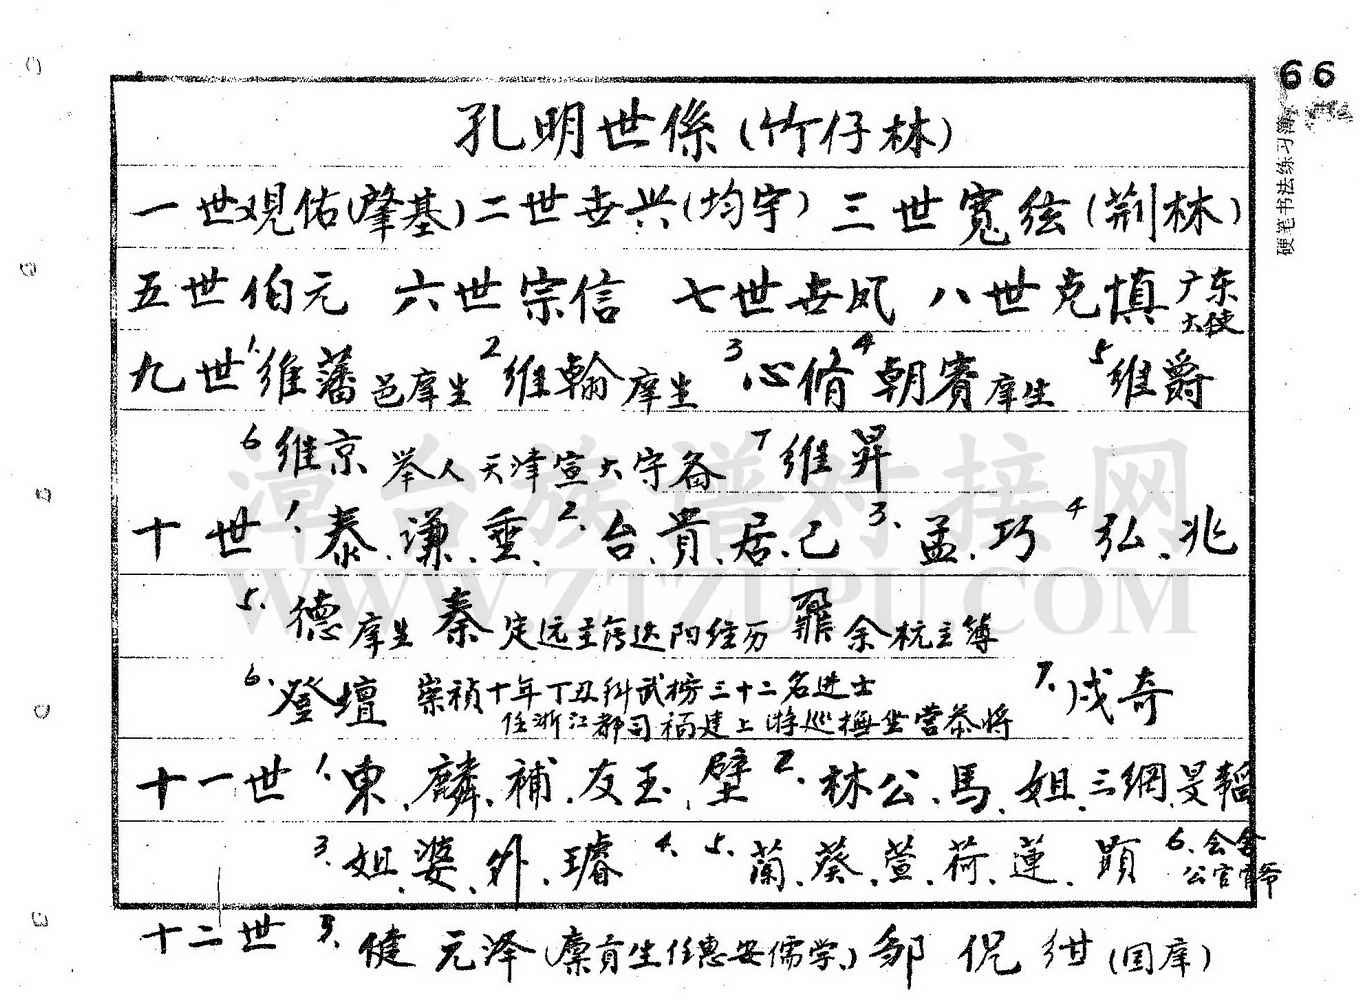 66
硬笔书法练习簿
孔明世係(竹仔林)
一世观佑(肇基)二世世兴(均宇)三世寬絃(荆林)
五世伯元 六世宗信 七世世凤 八世克慎 广东大使
九世1.維藩邑庠生 2維翰庠生 3心脩 4朝賓庠生 5維爵
6維京 举人天津宣大守备 7維昇
十世1.泰.谦.垂.2.台.貴.居.己 3.孟.巧 4弘.兆
5.德庠生 秦 定远主簿迭阳经历 鼐 余杭主簿
6.登壇 崇祯十年丁丑科武榜三十二名进士 7.戌奇
任浙江都司福建上游巡撫坐营恭将
十一世1.東.麟.補.友玉.璧2.林公.馬.姐.三網.旻韜
3.姐.婆.外.璿 4. 5.蘭.葵.萱.荷.蓮.顕 6.会舍
公官宵爷
十二世 3.健 元泽(廪貢生任惠安儒学.)邹 侃 紺(国庠)
漳台族谱对接网
WWW.ZTZUPU.COM